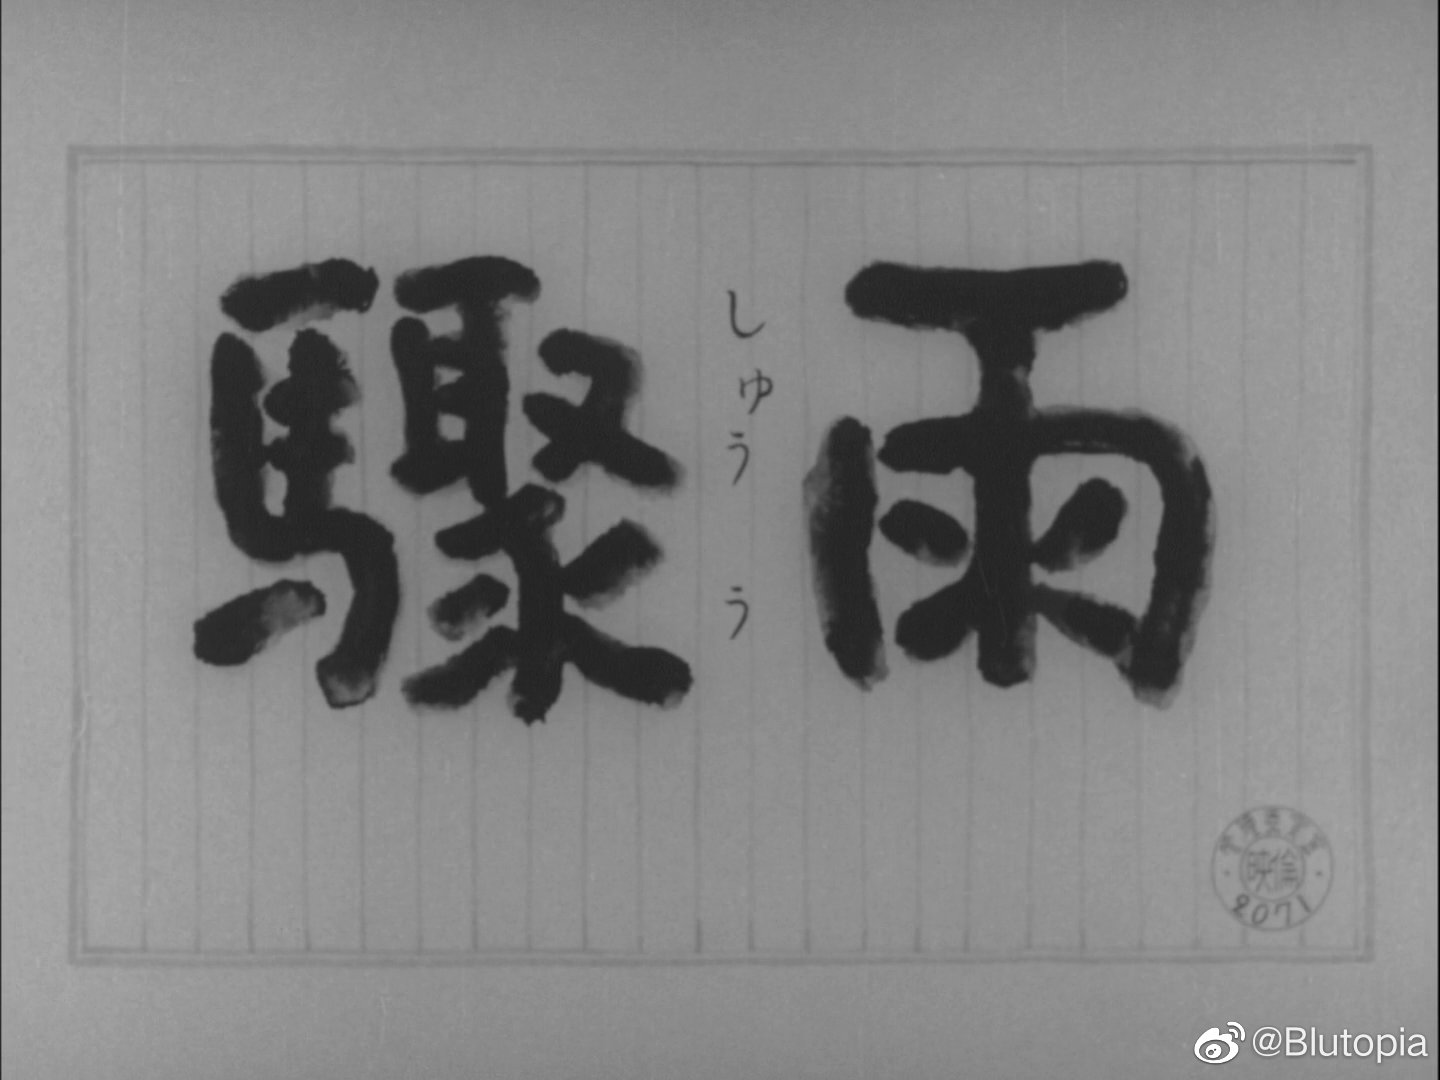 驟雨
しゅう う
映倫
2071
@Blutopia